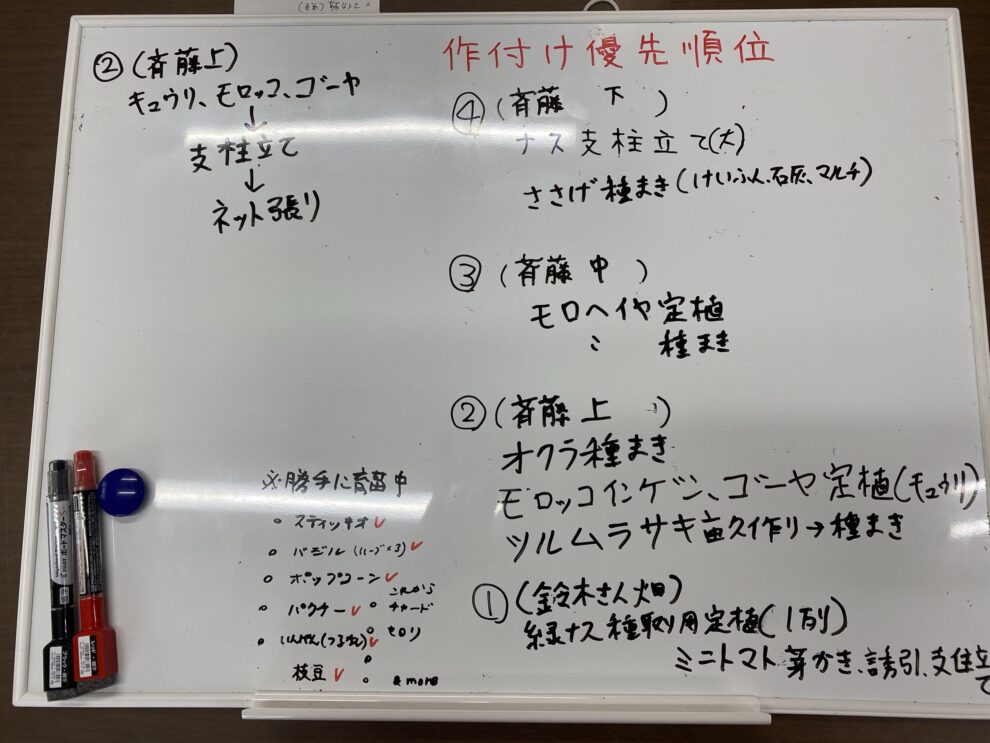 作付け優先順位
②(斉藤上)
キュウリ、モロッコ、ゴーヤ
↓
支柱立て
↓
ネット張り
④(斉藤 下 )
ナス支柱立て(大)
ささげ種まき(けいふん、石灰、マルチ)
③(斉藤 中 )
モロヘイヤ定植
〃 種まき
②(斉藤 上 )
オクラ種まき
モロッコインゲン、ゴーヤ定植(キュウリ)
ツルムラサキ畝作り→種まき
①(鈴木さん畑)
緑ナス種取り用定植(1列)
ミニトマト芽かき、誘引、支柱立て
※勝手に育苗中
○ スティッキオ ✓
○ バジル(ハーブ×3) ✓
○ ポップコーン ✓
○ パクチー ✓
○ いんげん(つる有) ✓
枝豆 ✓
これから
○ チャード
○ セロリ
○
○ & more